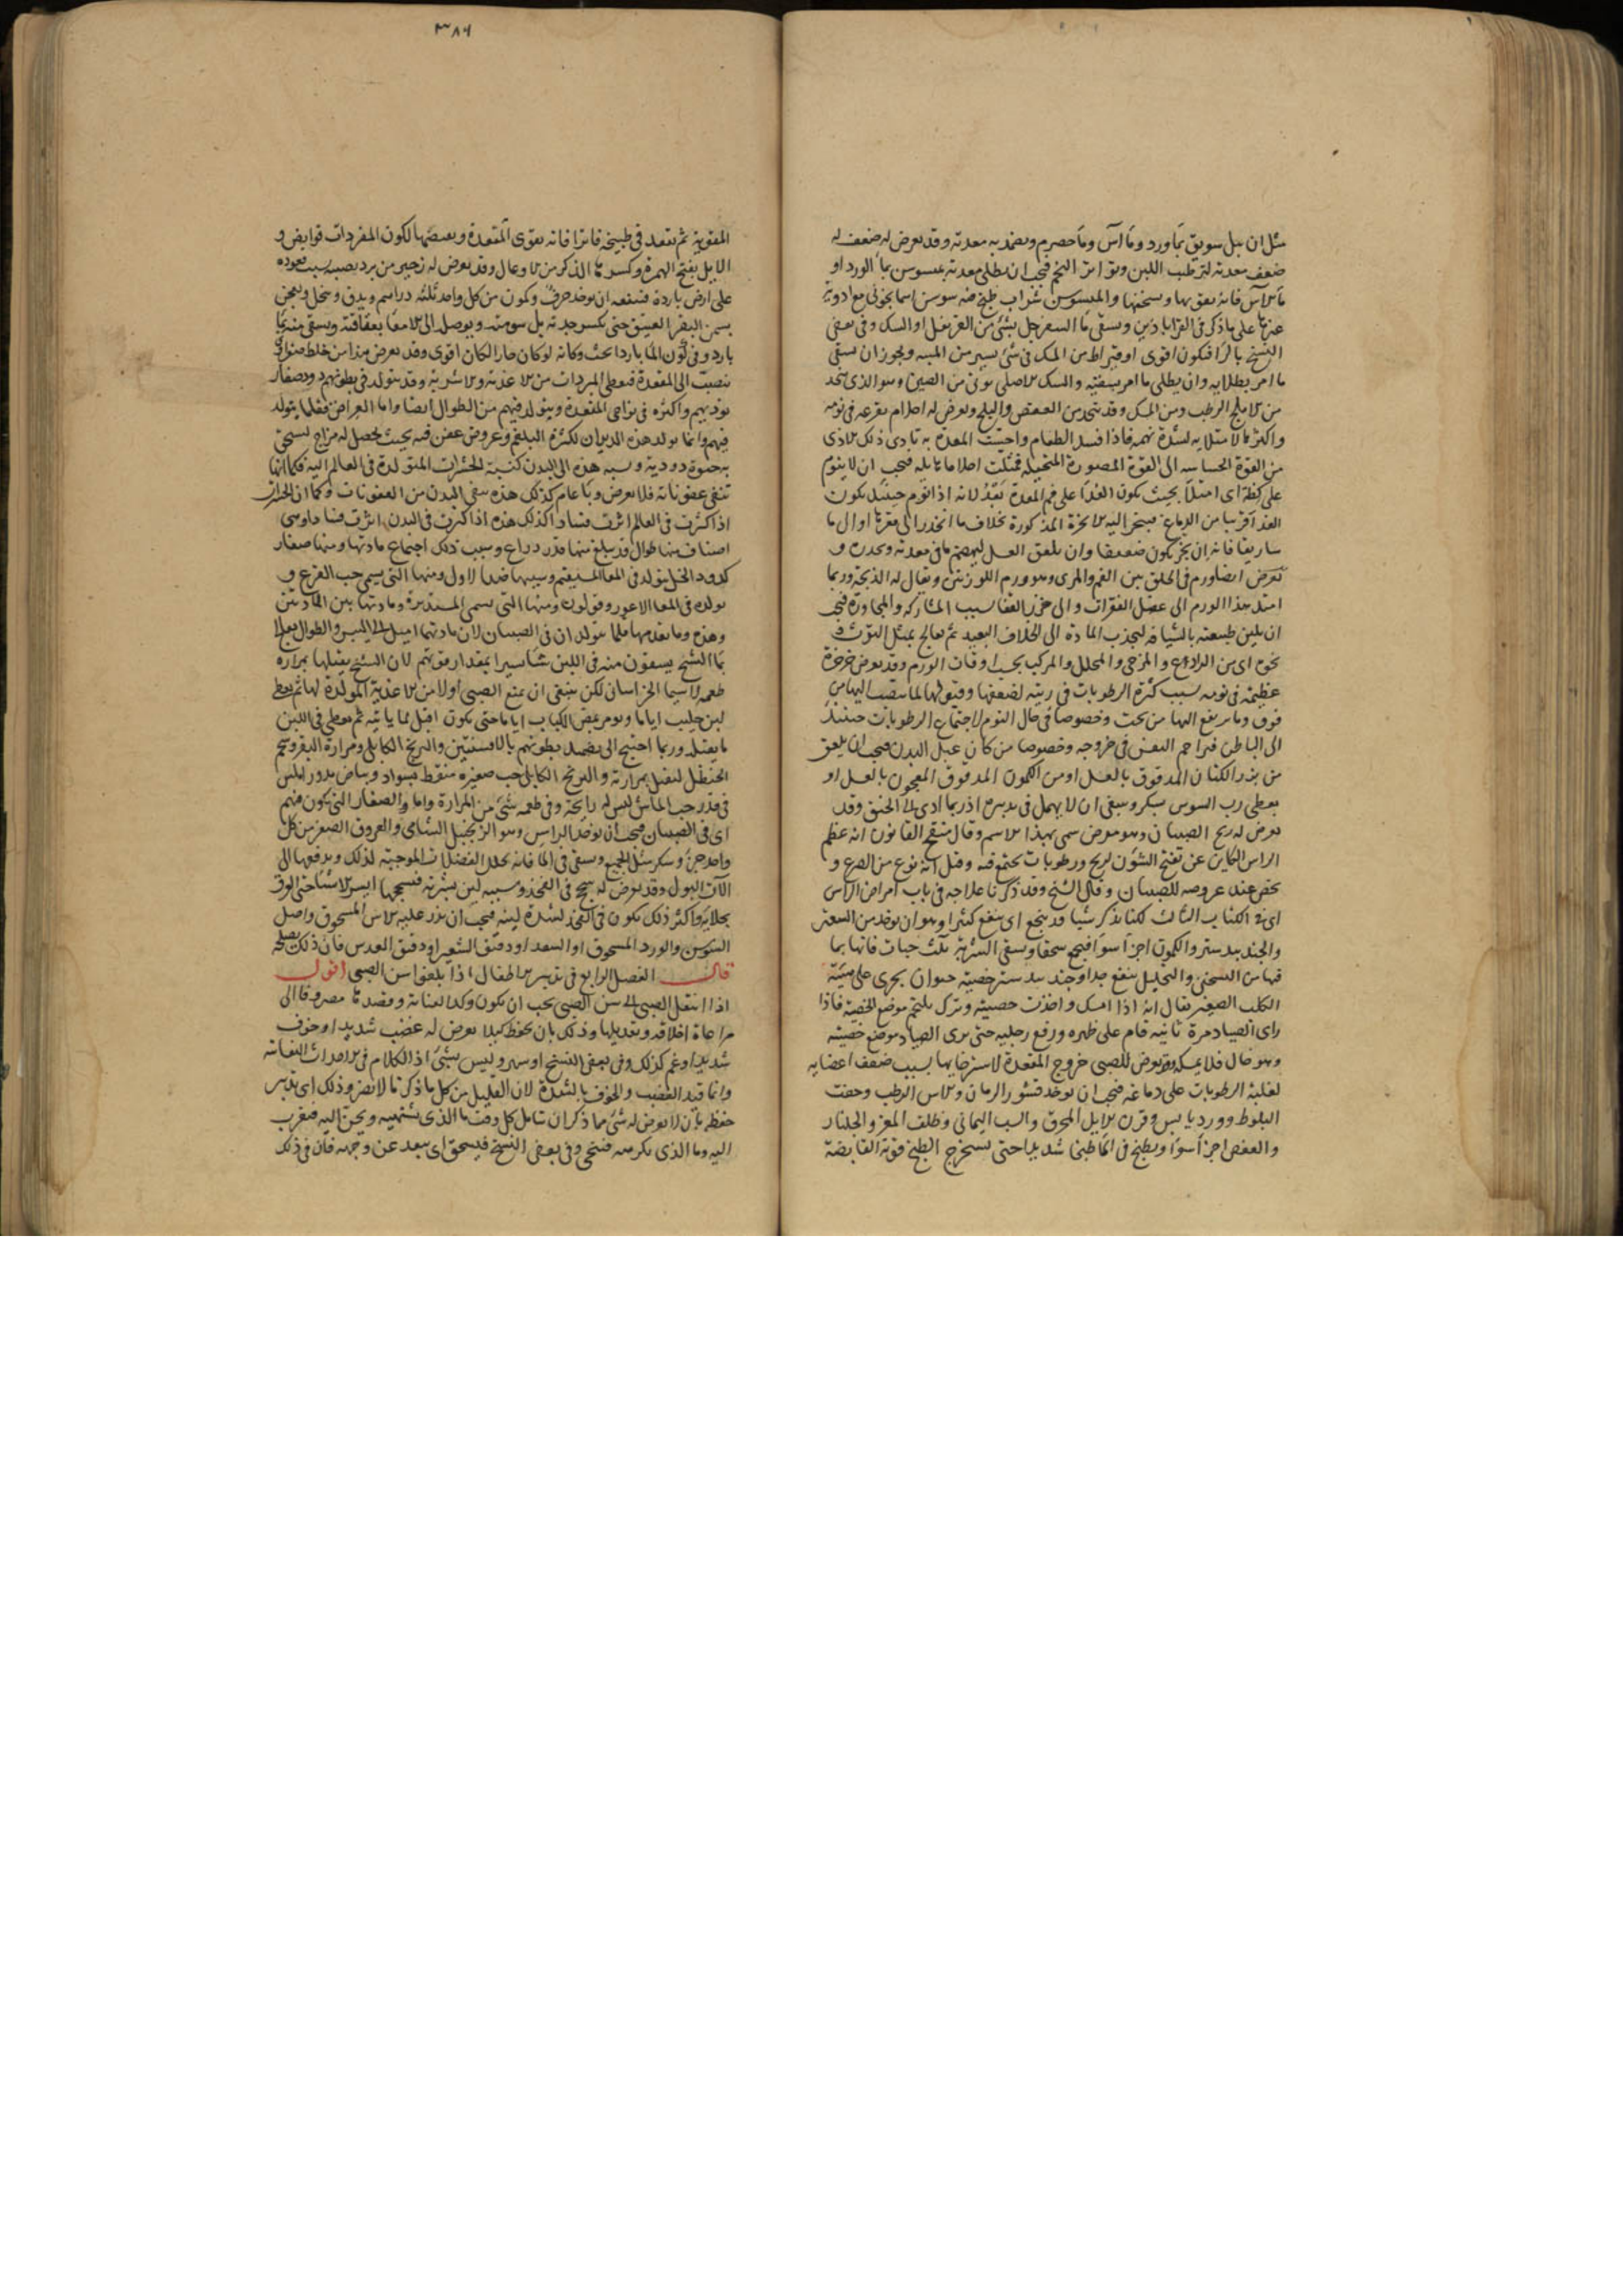 مثل ان يبل سويق بماورد وماآس وماحصرم ويضمد به معدته وقد يعرض له ضعف له
ضعف معدته لترطب اللبن وتواتر التخم فيجب ان يطلى معدته بميسوسن بماالورد او
ماالآس فانه يقويها ويسخنها والميسوسن شراب طبخ فيه سوسن اسمانجونى مع ادوية
على ما ذكر فى القراباذين ويسقى ماالسفرجل بشئ من القرنفل او السك وفى بعض
النسخ بالراء فيكون اقوى او قيراط من السك فى شئ يسير من الميبه ويجوز ان يسقى
ما امر بطلايه وان يطلى ما امر بسقيه والسك الاصلى يوتى من الصين وهو الذى يتخذ
من الاملج الرطب ومن المسك وقد يتخذ من العفص والبلح ويعرض له احلام تفزعه فى نومه
واكثر لامتلايه لشدة نهمه فاذا فسد الطعام واحست المعدة به تادى ذلك الاذى
من القوة الحساسه الى القوة المصورة المتخيلة فمثلت احلاما هايلة فيجب ان لاينوم
على كظة اى امتلأ بحيث يكون الغذا على فم المعدة بعد لانه اذا نوم حينئذ يكون
الغذاقريبا من الدماغ فيتبخر اليه الابخرة المذكورة بخلاف ما انحدر الى قعرها او الى ما
ساريقا فانه ان بخر يكون ضعيفا وان يلعق العسل ليهضم ما فى معدته ويحدره و
تعرض ايضا ورم فى الحلق بين الفم والمرى وهو ورم اللوزتين ويقال له الذبحة وربما
امتد هذا الورم الى عضل الفقرات والى خرز القفا بسبب المشاركة والمجاورة فيجب
ان يلين طبيعته بالشيافه ليجذب المادة الى الخلاف البعيد ثم يعالج بمثل التوث و
نحوه اى من الرادع والمرخى والمحلل والمركب بحسب اوقات الورم وقد يعرض خرخرة
عظيمة فى نومه بسبب كثرة الرطوبات فى ريته لضعفها وقبولها لما ينصب اليها من
فوق وما يرتفع اليها من تحت وخصوصا فى حال النوم لاجتماع الرطوبات حينئذ
الى الباطن فيزاحم النفس فى خروجه وخصوصا من كان عبل البدن فيجب ان يلعق
من بزر الكتان المدقوق بالعسل او من الكمون المدقوق المعجون بالعسل او
يعطى رب السوس بسكر وينبغى ان لا يهمل فى تدبيره اذ ربما ادى الى الخنق وقد
يعرض له ريح الصبيان وهو مرض سمى بهذا الاسم وقال منقح القانون انه عظم
الراس الكاين عن تفتح الشؤن لريح ورطوبات تجتمع فيه وقيل انه نوع من الصرع و
يختص عند عروضه للصبيان وقال الشيخ وقد ذكرنا علاجه فى باب امراض الراس
اى فى الكتاب الثالث لكنا نذكر شيا قد ينجع اى ينفع كثيرا وهو ان يوخذ من السعتر
والجندبيدستر والكمون اجزأ سوأ فيجمع سحقا ويسقى الشربة ثلث حبات فانها بما
فيها من التسخين والتحليل ينفع جدا وجندبيدستر خصية حيوان بحرى على هيئة
الكلب الصغير يقال انه اذا امسك واخذت خصيته وترك يلتحم موضع الخصية فاذا
راى الصياد مرة ثانيه قام على ظهره ورفع رجليه حتى يرى الصياد موضع خصيته
وهو خال فلا يمسكه وقد يعرض للصبى خروج المقعدة لاسترخايها بسبب ضعف اعضايه
لغلبة الرطوبات على دماغه فيجب ان يوخذ قشور الرمان والاس الرطب وجفت
البلوط وورد يابس وقرن الايل المحرق والشب اليمانى وظلف المعز والجلنار
والعفص اجزأ سوأ ويطبخ فى الما طبخا شديدا حتى يستخرج الطبخ قوته القابضة
٣٨٦
المقوية ثم يقعد فى طبيخه فاترا فانه يقوى المقعدة ويعصمها لكون المفردات قوابض و
الايل بفتح الهمزة وكسرها الذكر من الاوعال وقد يعرض له زحير من برد يصيبه بسبب قعوده
على ارض باردة فينفعه ان يوخذ حرف وكمون من كل واحد ثلثه دراهم ويدق وينخل ويعجن
بسمن البقر العتيق حتى يكسر حدته بل سومته ويوصله الى الامعا بغقافته ويسقى منه بما
بارد وفى كون الما باردا بحث وكانه لو كان حارا لكان اقوى وقد يعرض هذا من خلط صفراوى
ينصب الى المقعدة فيعطى المبردات من الاغذية والاشربة وقد يتولد فى بطونهم دود صغار
يوذيهم واكثره فى نواحى المقعدة ويتولد فيهم من الطوال ايضا واما العراض فقلما يتولد
فيهم وانما تولد هذه الديدان لكثرة البلغم وعروض عفن فيه بحيث يحصل له مزاج يستحق
به حيوة دودية ونسبة هذه الى البدن كنسبة الحشرات المتولدة فى العالم اليه فكما انها
تنقى عفوناته فلا يعرض وبأ عام كذلك هذه تنقى البدن من العفونات وكما ان الحشرات
اذا كثرت فى العالم اثرت فسادا كذلك هذه اذا كثرت فى البدن اثرت فسادا وهى
اصناف منها طوال قد يبلغ منها قدر ذراع وسبب ذلك اجتماع مادتها ومنها صغار
كدود الخل يتولد فى المعا المستقيم وسببها ضد الاول ومنها التى يسمى حب القرع و
تولده فى المعا الاعور وقولون ومنها التى يسمى المستديرة ومادتها بين المادتين
وهذه وما تقدمها قلما يتولدان فى الصبيان لان مادتهما اميل الى اليبس والطوال يعالج
بما الشيح يسقون منه فى اللبن شأ يسيرا بمقدار قوتهم لان الشيح يقتلها بمرارة
طعمه لا سيما الخراسانى لكن ينبغى ان يمنع الصبى اولا من الاغذية المولدة لها ثم يعطى
لبن حليب اياما ويومر بمص الكباب اياما حتى يكون اقبل لما ياتيه ثم يعطى فى اللبن
ما يقتله وربما احتيج الى تضميد بطونهم بالافسنتين والبرنج الكابلى ومرارة البقر وشحم
الحنظل لتقتل بمرارته والبرنج الكابلى حب صغيرة منقط بسواد وبياض مدور املس
فى قدر حب الماش ليس له رايحة وفى طعمه شئ من المرارة واما الصغار التى يكون فيهم
اى فى الصبيان فيجب ان يوخذ الراسن وهو الزنجبيل الشامى والعروق الصفر من كل
واحد جزؤ وسكر مثل الجميع ويسقى فى الما فانه يحلل الفضلات الموجبة لذلك ويدفعها الى
الآت البول وقد يعرض له سحج فى الفخذ وسببه لين بشرته فيسحجها ايسر الاشيأ حتى البول
بجلايه واكثر ذلك يكون فى الفخذ لشدة لينه فيجب ان يذر عليه الاس المسحوق واصل
السوسن والورد المسحوق او السعد او دقيق الشعير او دقيق العدس فان ذلك يصلحه
قال الفصل الرابع فى تدبير الاطفال اذا بلغوا سن الصبى اقول
اذا انتقل الصبى الى سن الصبى يجب ان يكون وكد العناية وقصدها مصروفا الى
مراعاة اخلاقه وتعديلها وذلك بان يحفظ كيلا يعرض له غضب شديد او خوف
شديد او غم كذلك وفى بعض النسخ او سهر وليس بشئ اذ الكلام فى الاحداث النفسانية
وانما قيد الغضب والخوف بالشدة لان القليل من كل ما ذكر لا يضر وذلك اى تدبير
حفظه بان لا يعرض له شئ مما ذكر ان يتامل كل وقت ما الذى يشتهيه ويحن اليه فيقرب
اليه وما الذى يكرهه فينحى وفى بعض النسخ فيسحق اى يبعد عن وجهه فان فى ذلك